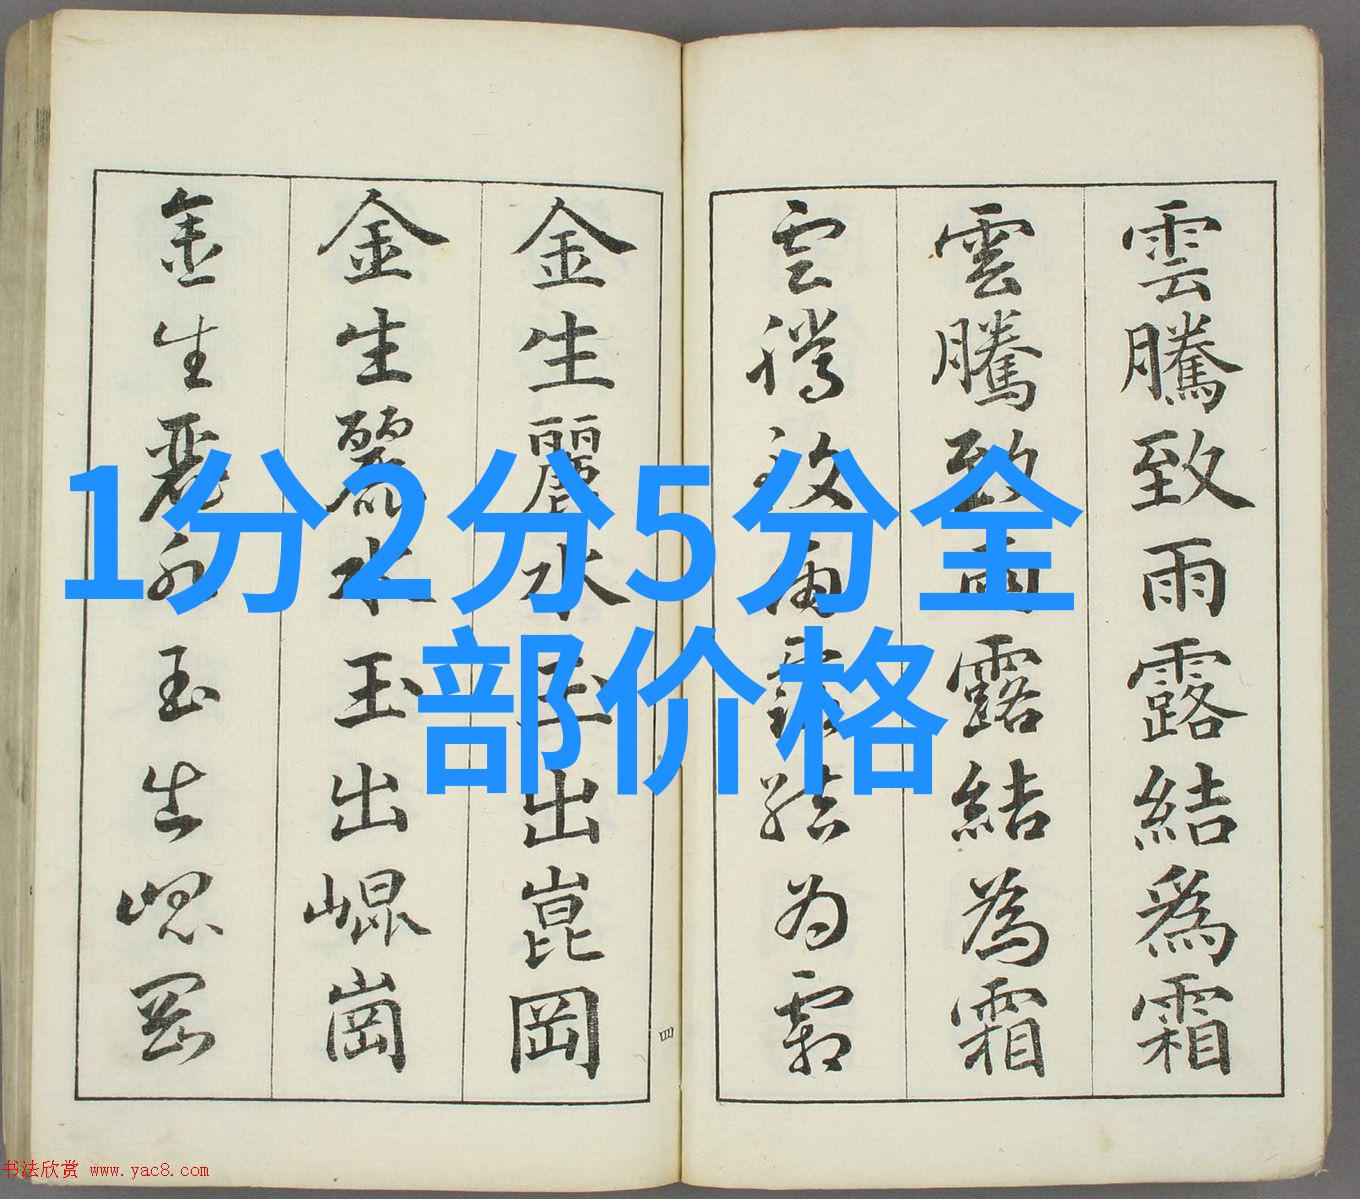 1分2分5分全
部价格
雲騰致雨露結為霜
雲騰致雨露結為霜
雲騰致雨露結為霜
金生麗水玉出崑岡
金生麗水玉出崐崗
金生麗水玉出崐岡
四
书法欣赏 www.yac8.com